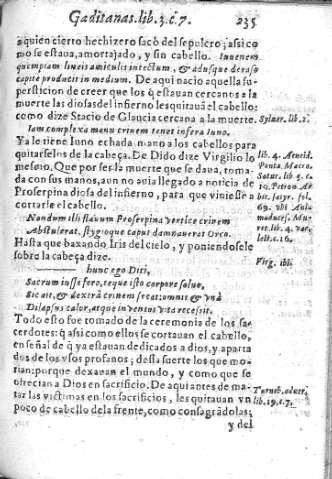 Gaditanas.lib.3.c.7. 235
a quien cierto hechizero sacò del sepulcro; assi co
mo se estaua, amortajado, y sin cabello. Iuuenem
quempiam lineis amiculis intectum, & adusque deraso
capite producit in medium. De aqui nacio aquella su-
persticion de creer que los q̃ estauan cercanos a la
muerte las diosas del infierno les quitauã el cabello:
como dize Stacio de Glaucia cercano a la muerte.
Iam complexa manu crinem tenet infera Iuno.
Ya le tiene Iuno echada mano a los cabellos para
quitarselos de la cabeça. De Dido dize Virgilio lo
mesmo. Que por ser la muerte que se daua, toma-
da con sus manos, aun no auia llegado a noticia de
Proserpina diosa del infierno, para que viniesse a
cortarle el cabello.
Nondum illi flauum Proserpina vertice crinem
Abstulerat, stygioque caput damnauerat Orco.
Hasta que baxando Iris del cielo, y poniendosele
sobre la cabeça dize.
hunc ego Diti,
Sacrum iussa fero, teque isto corpore soluo,
Sic ait, & dextra crinem secat; omnis & vnà
Dilapsus calor, atque in ventus vita recessit.
Todo esto fue tomado de la ceremonia de los sa-
cerdotes: q̃ assi como ellos se cortauan el cabello,
en señal de q̃ ya estauan dedicados a dios, y aparta
dos de los vsos profanos; desta suerte los que mo-
rian: porque dexauan el mundo, y como que se
ofrecian a Dios en sacrificio. De aqui antes de ma-
tar las victimas en los sacrificios, les quitauan vn
poco de cabello de la frente, como consagrãdolas;
y del
Syluer. lib. 2.
lib. 4. Aeneid.
Satur. lib. 5. c.
19. Petron. Ar
bit. satyr. fol.
lib. c. 16.
Virg. ibi.
Turneb. aduer.
lib. 19. c. 7.